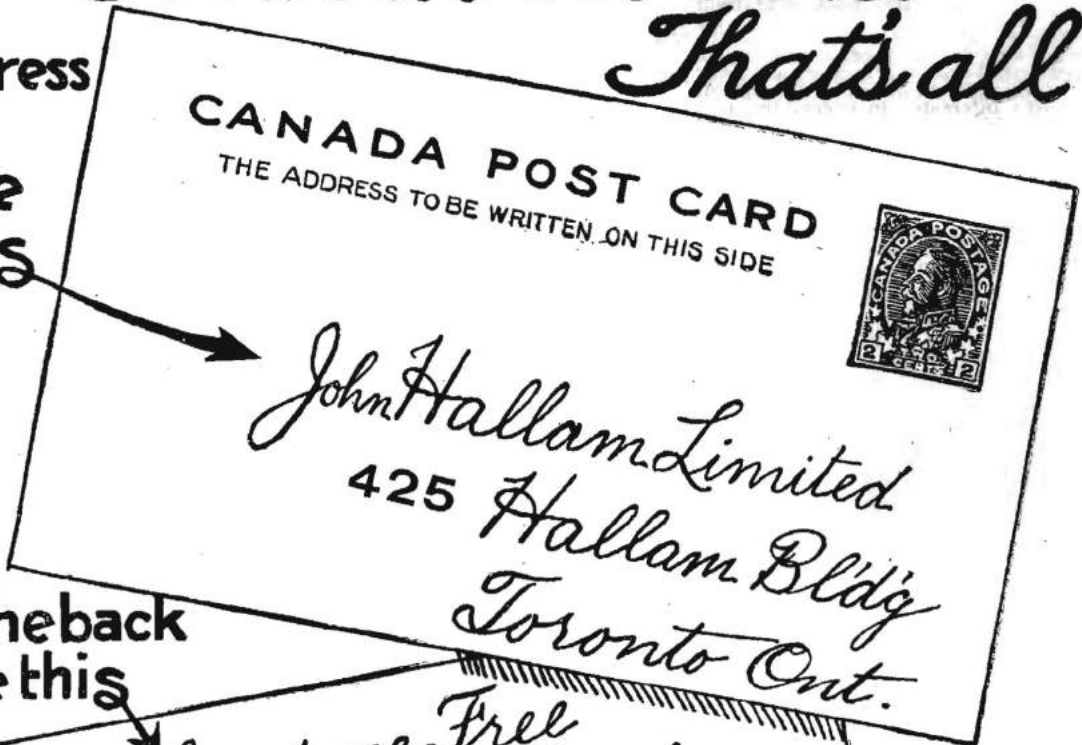 That's all
ress
CANADA POST CARD
THE ADDRESS TO BE WRITTEN ON THIS SIDE
CANADA POSTAGE
2 TWO CENTS 2
s
John Hallam Limited
425 Hallam Bl'd'g
Toronto Ont.
back
this
Free